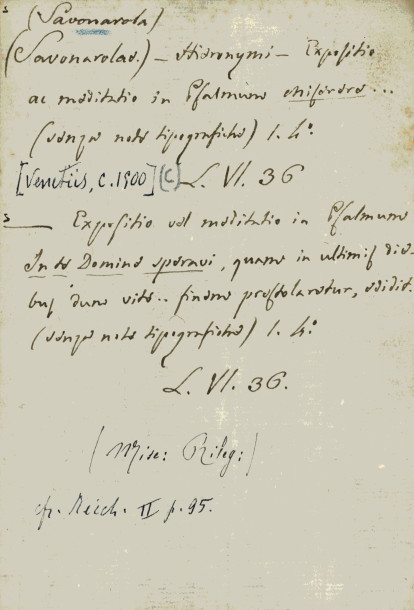 1
(Savonarola)
(Savonarolae.) – Hieronymi – Expositio
ac meditatio in Psalmum Miserere...
(senza note tipografiche) 1. 4º.
[Venetiis, c. 1500] (C) L. VI. 36
2 —— Expositio vel meditatio in Psalmum
In te Domine speravi, quam in ultimis die-
bus dum vite.. finem prestolaretur, edidit.
(senza note tipografiche) 1. 4º.
L. VI. 36.
(Misc: Rileg:)
cfr. Reich. II p. 95.